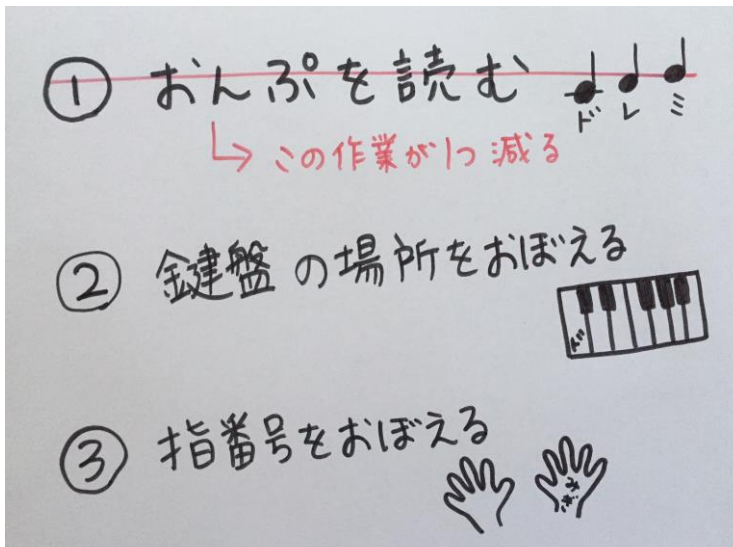 ① おんぷを読む
ド レ ミ
↳ この作業が1つ減る
② 鍵盤の場所をおぼえる
ド
③ 指番号をおぼえる
みぎ